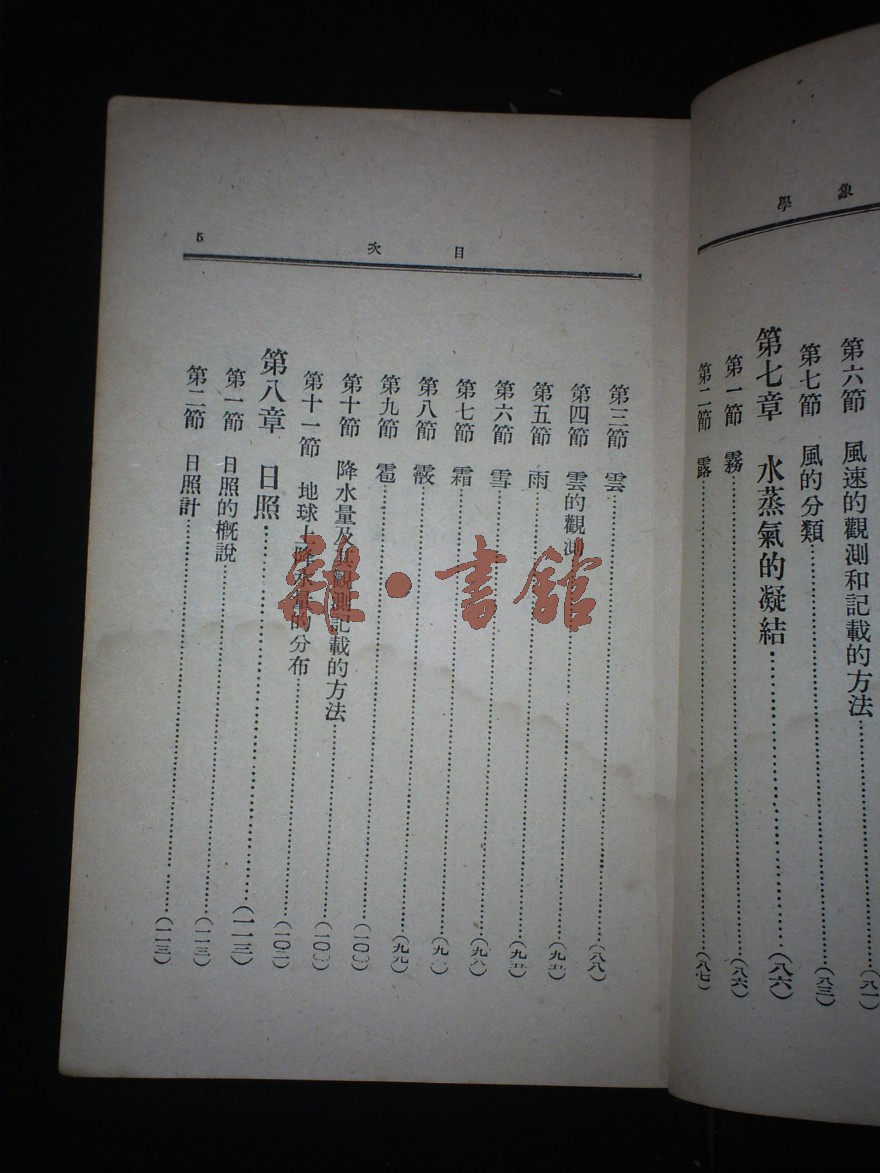 象學
第六節 風速的觀測和記載的方法……(八一)
第七節 風的分類……(八三)
第七章 水蒸氣的凝結……(八六)
第一節 霧……(八六)
第二節 露……(八七)
目次
5
第三節 雲……(八八)
第四節 雲的觀測……
第五節 雨……
第六節 雪……
第七節 霜……
第八節 霰……(九九)
第九節 雹……
第十節 降水量及其觀測記載的方法……
第十一節 地球上降水量的分布……(一〇二)
第八章 日照……(一一三)
第一節 日照的概說……(一一三)
第二節 日照計……(一一三)
雜·書館